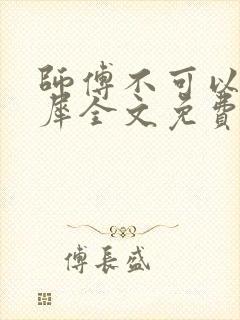 師傅不可以
犀全文免費
傅長盛